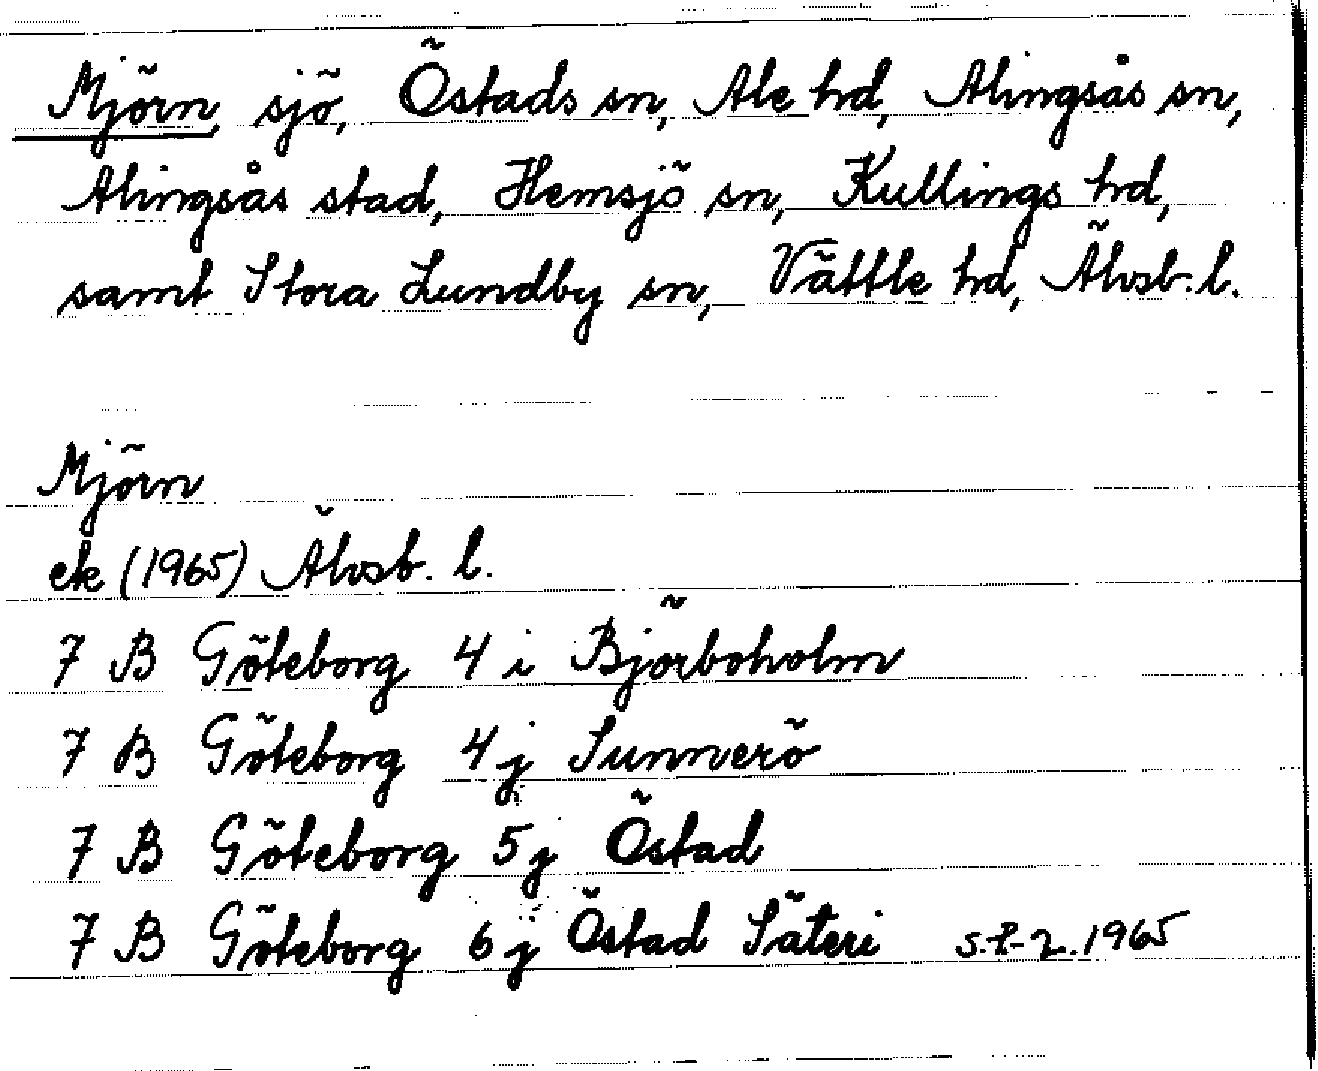 Mjörn, sjö, Östads sn, Ale hd, Alingsås sn,
Alingsås stad, Hemsjö sn, Kullings hd,
samt Stora Lundby sn, Vättle hd, Älvsb. l.
Mjörn
ek (1965) Älvsb. l.
7 B Göteborg 4 i Björboholm
7 B Göteborg 4 j Sunnerö
7 B Göteborg 5 j Östad
7 B Göteborg 6 j Östad Säteri 1965